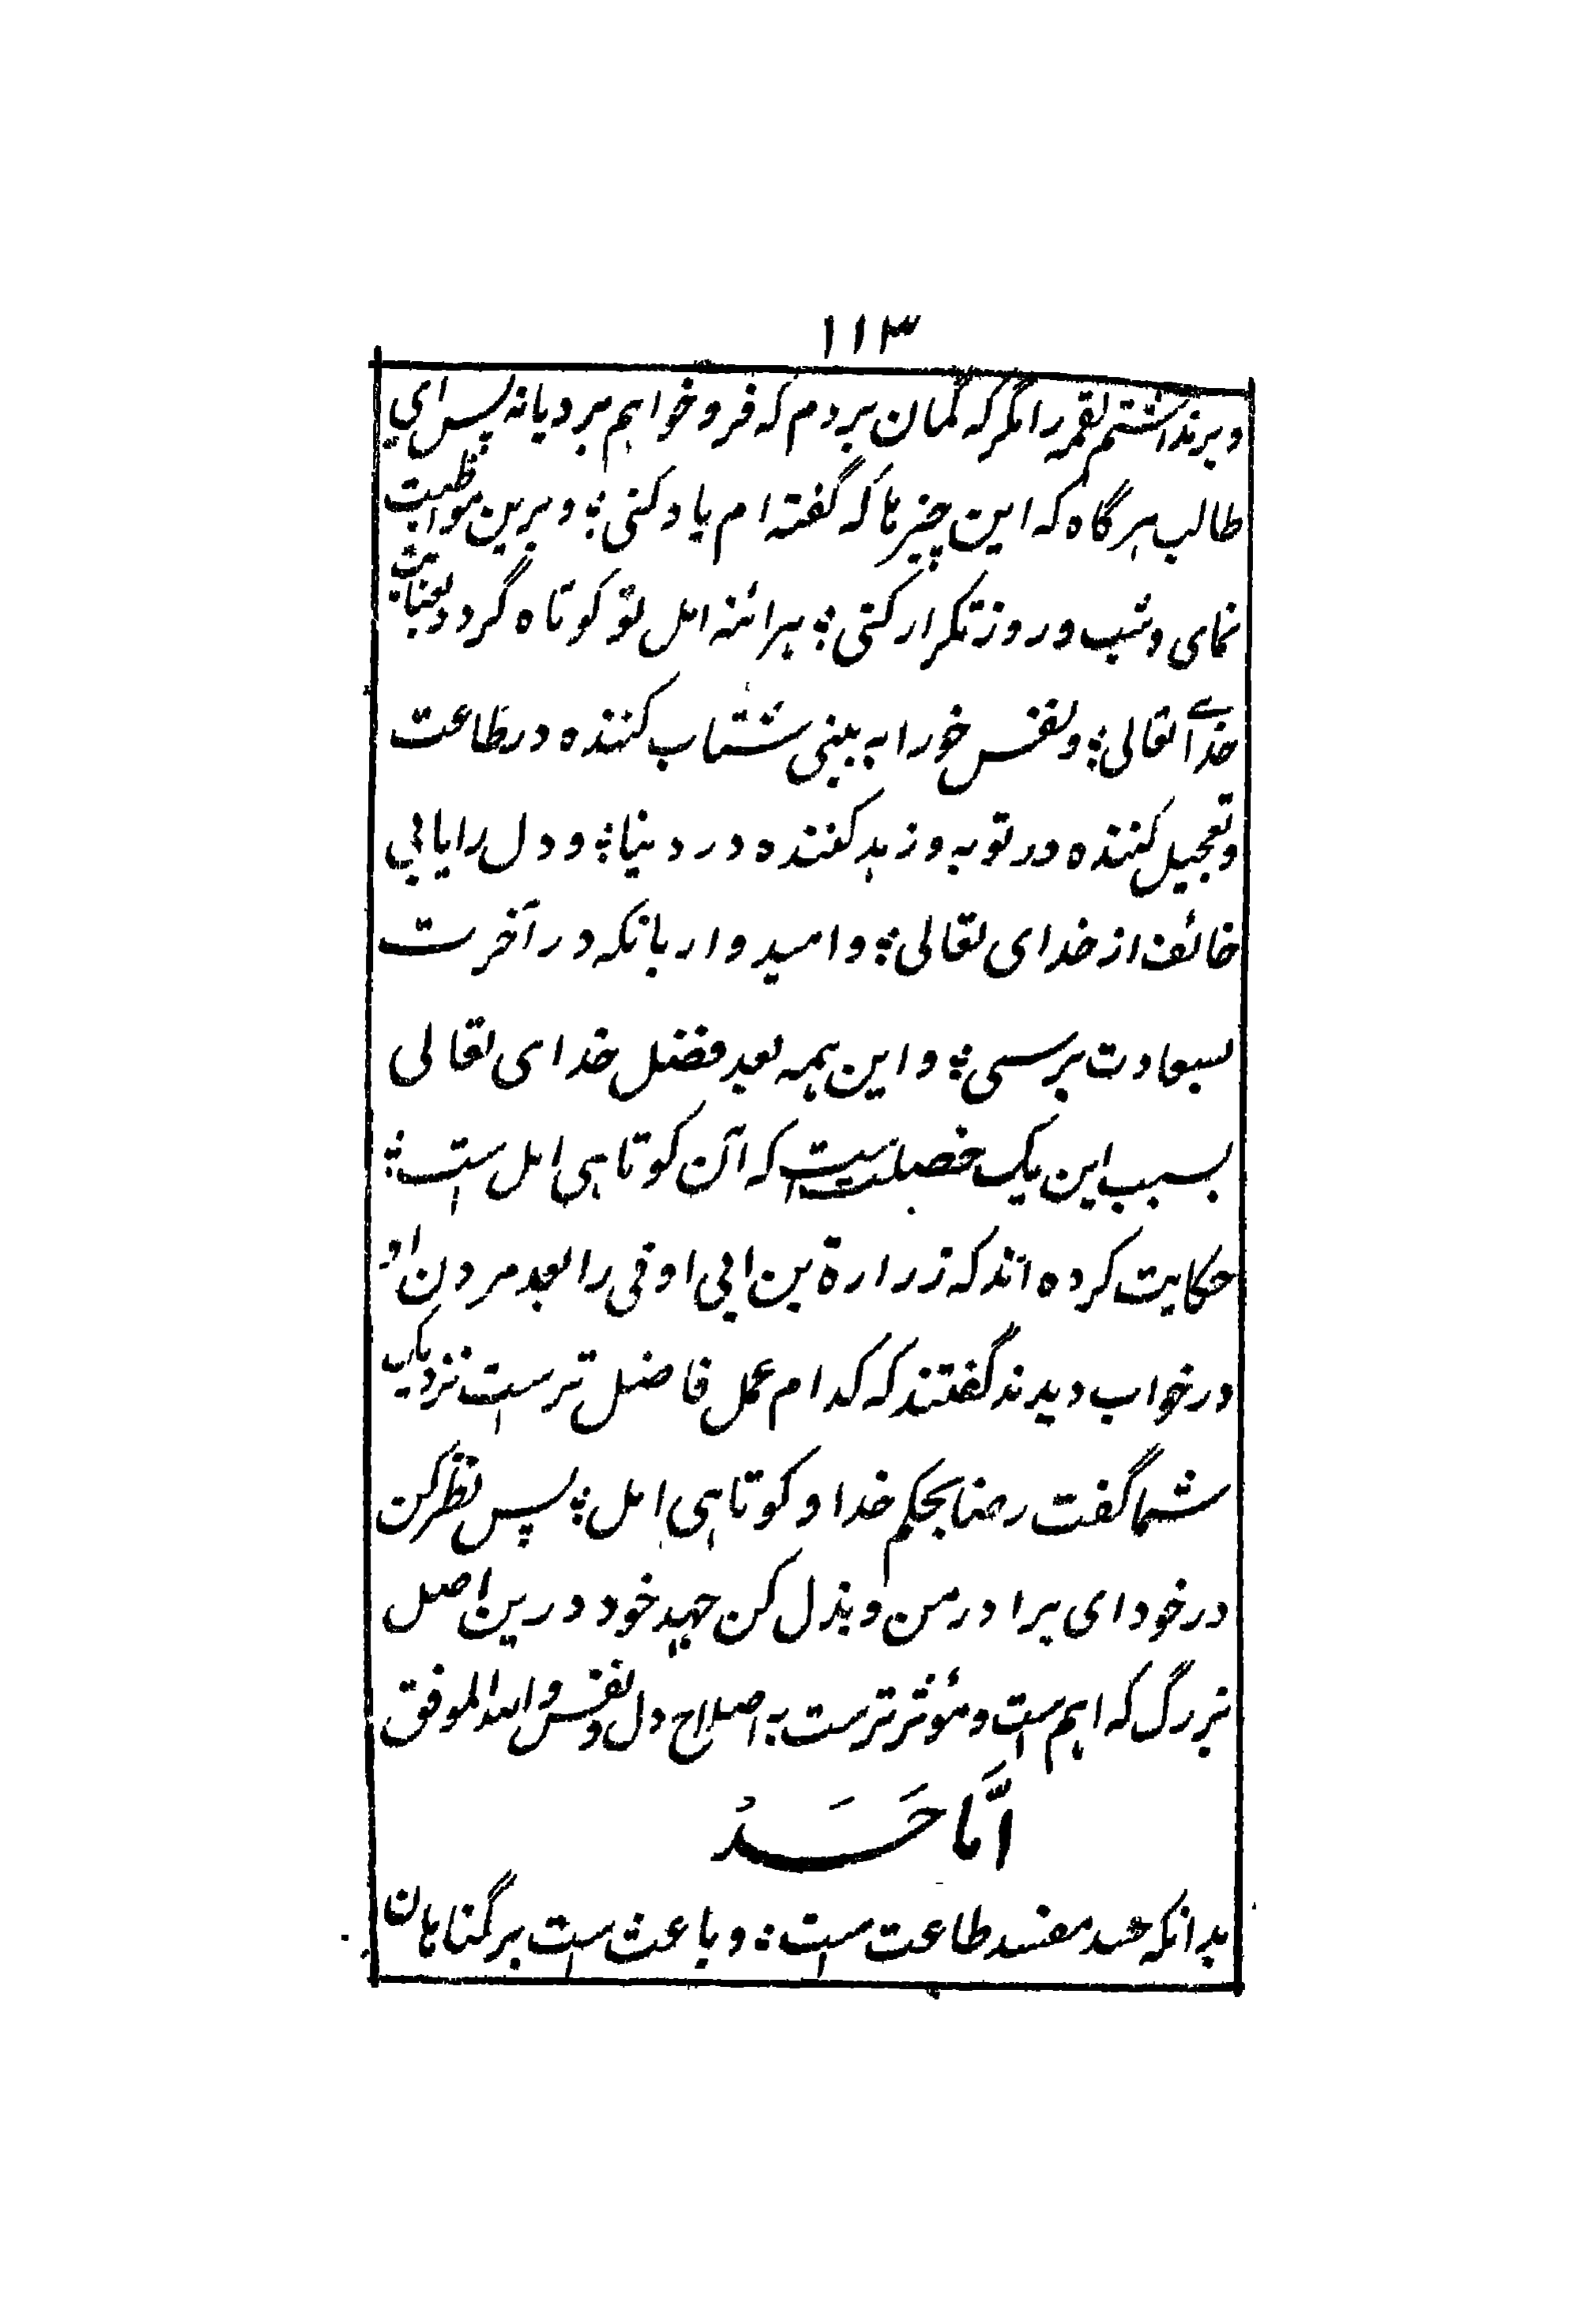 ۱۱۳
وبرنداشتم لقمه را مگر که گمان بردم که فرو خواهم برد یا نه پس ای
طالب هرگاه که این چیزها که گفته ام یاد کنی؛ و برین مواظبت
نمای و شب و روز تکرار کنی؛ هرائنه امل تو کوتاه گردد بعنایت
خدای تعالی؛ و نفس خود را به بینی شتاب کننده در طاعت
و تعجیل کننده در توبه و زهد کننده در دنیا؛ و دل را یابی
خائف از خدای تعالی؛ و امیدوار بانکه در آخرت
بسعادت برسی؛ و این همه بعد فضل خدای تعالی
بسبب این یک خصلت است که آن کوتاهی امل است؛
حکایت کرده اند که زرارة بن ابی اوفی را بعد مردن او
در خواب دیدند گفتند که کدام عمل فاضل ترست نزدیک
شما گفت رضا بحکم خدا و کوتاهی امل؛ پس نظر کن
در خود ای برادر من و بذل کن جهد خود درین اصل
بزرگ که اهم ست و مؤثر ترست به اصلاح دل و نفس والله الموفق
امَّا حَسَدْ
بدانکه حسد مفسد طاعت است؛ و باعث است بر گناهان